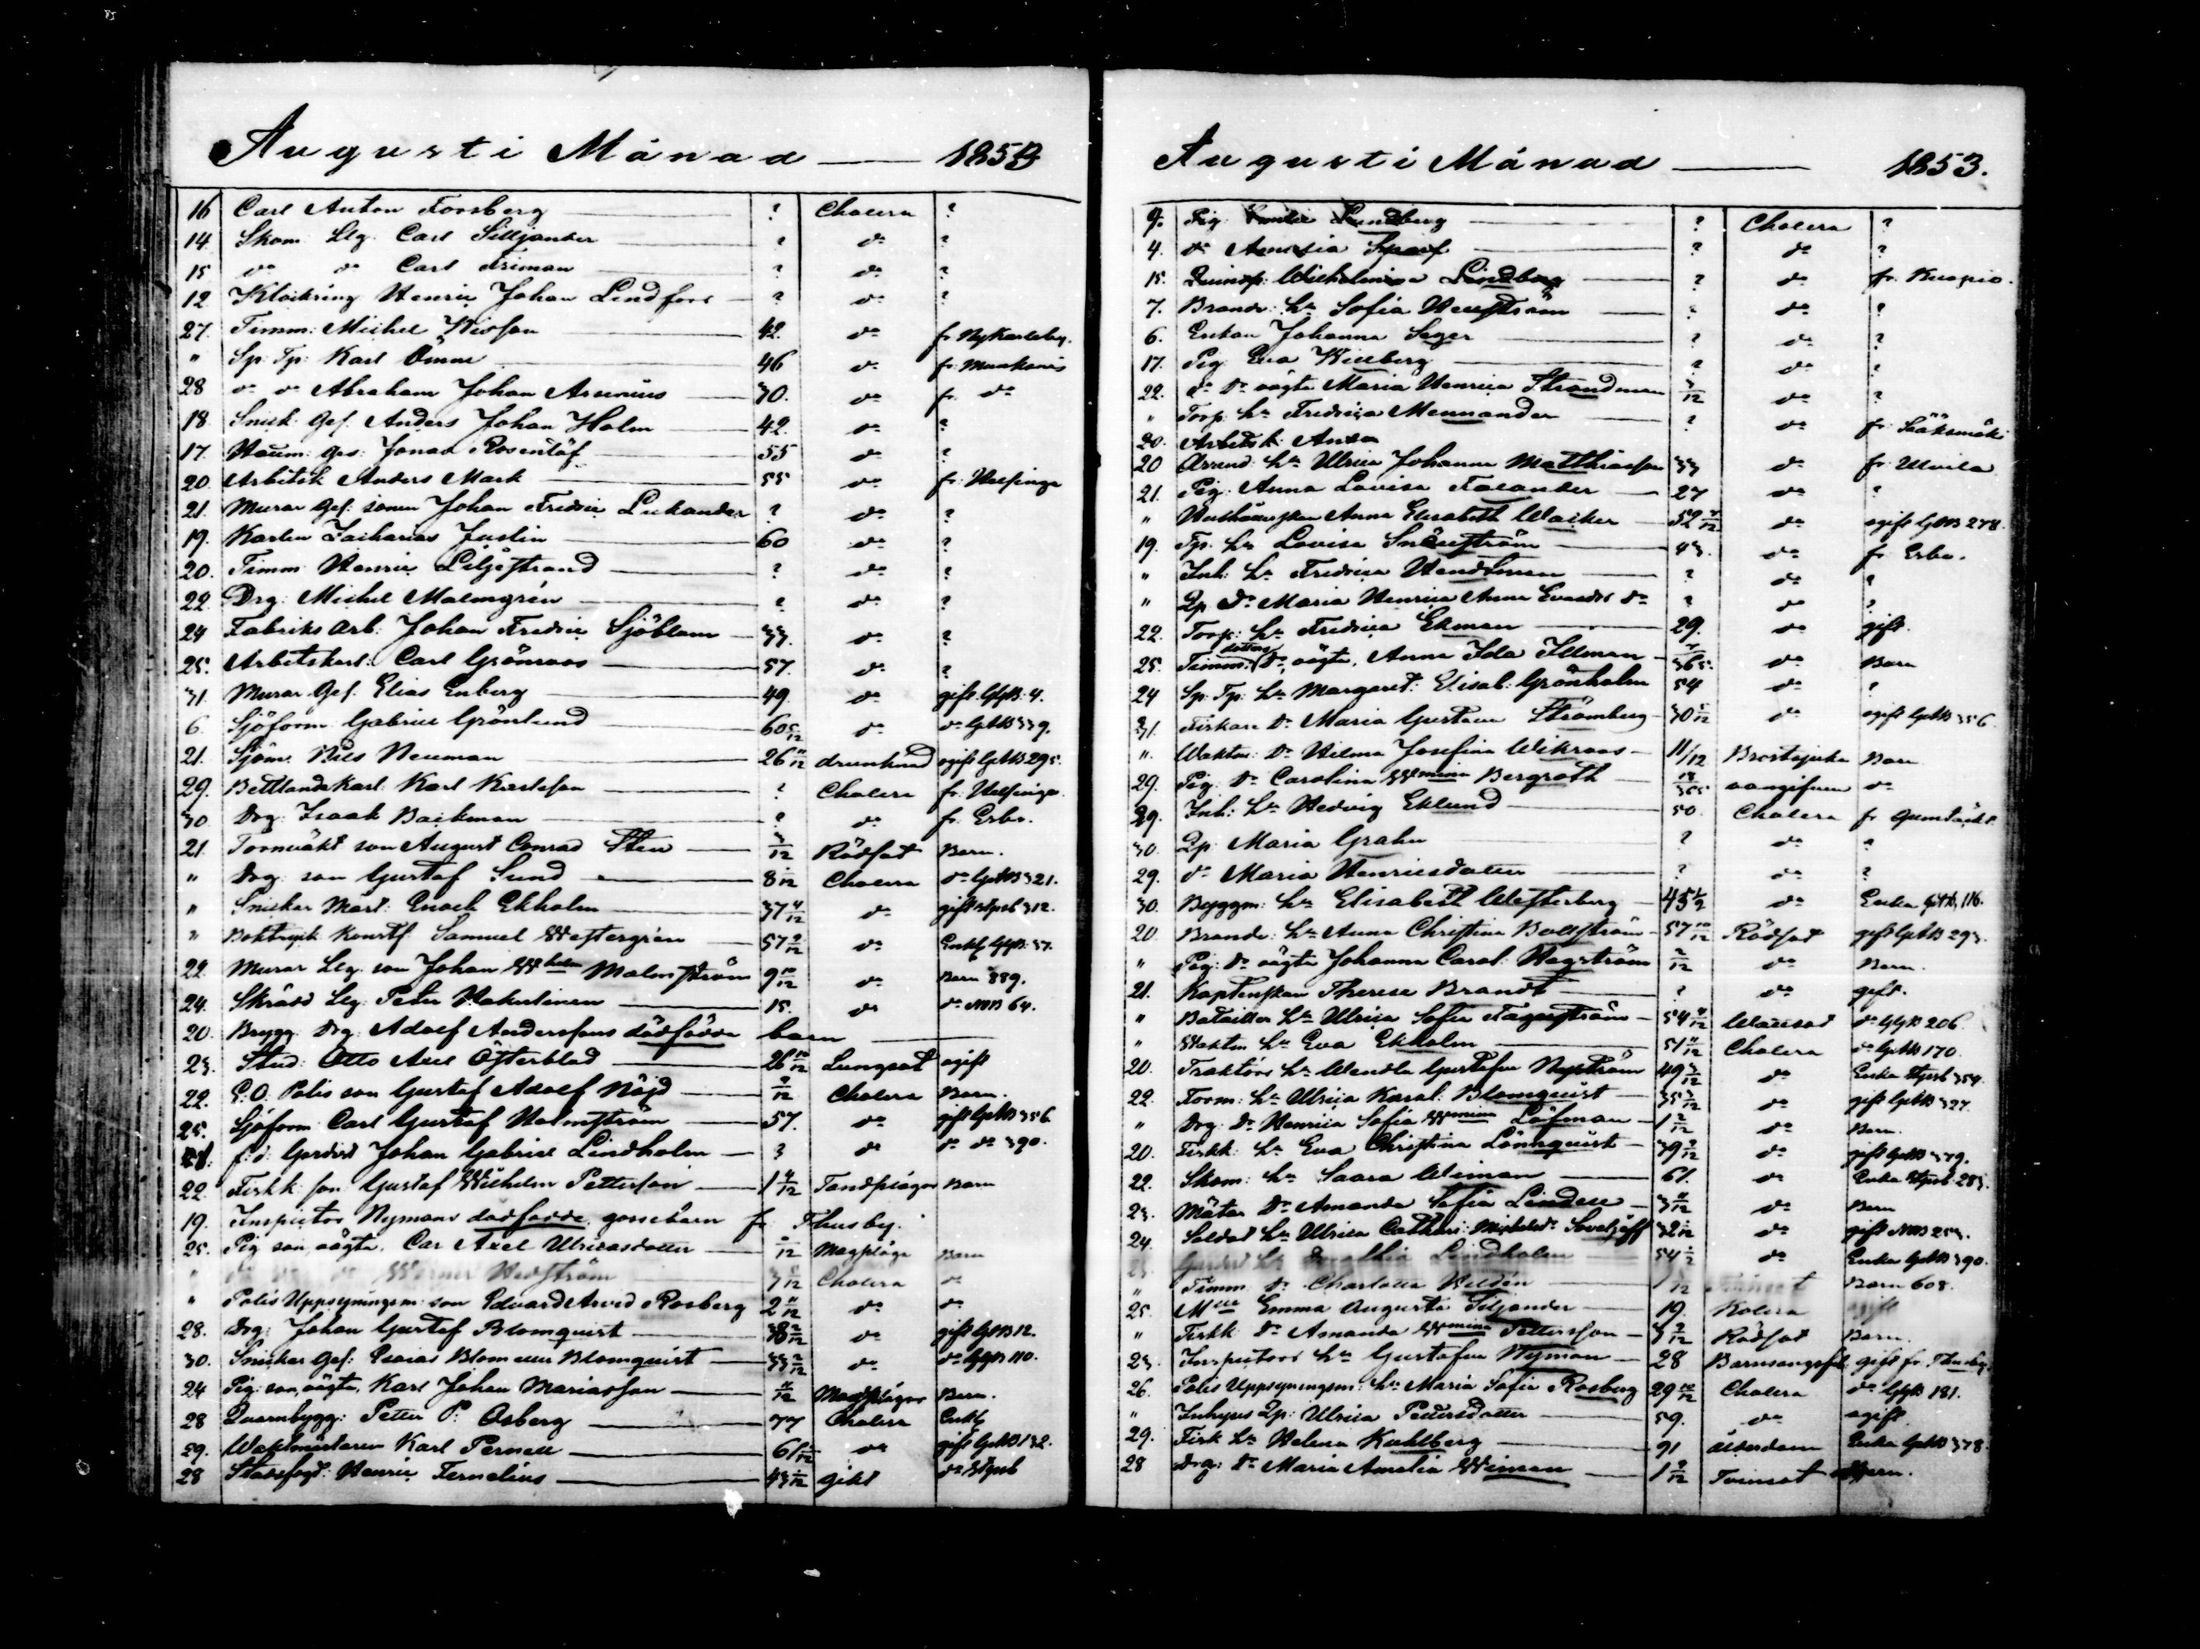 Augusti Månad — 1853
16 Carl Anton Forsberg — ? Cholera ?
14. Skom: Llg: Carl Silljander — ? do ?
15 do do Carl Friman — ? do ?
12 Henric Johan Lindfors — ? do ?
27. Timm: Michel — 42. do fr. Nykarleby.
" Sp: Tp: Karl Ömme — 46 do fr. Munknäs
28 do do Abraham Johan Arsenius — 30. do fr. do
18. Snick: Gef: Anders Johan Holm — 42. do ?
17. Gef: Jonas Rosenlöf — 55 do ?
20 Arbetsk Anders Mark — 55 do fr. Helsinge
21. Murar Gef: sonen Johan Fredric Lukander ? do ?
19. Karlen Zacharias Justin — 60 do ?
20. Timm Henric Liljestrand — ? do ?
22. Drg: Michel Malmgrén — ? do ?
24 Fabriks Arb: Johan Fredric Sjöblom — 33. do ?
25. Arbetskarl: Carl Grönroos — 57. do ?
31. Murar Gef: Elias Enberg — 49. do gift GgB: 4.
6. Sjöform Gabriel Grönlund — 60 5/12 do do GpbB 339.
21. Sjöm: Nils Neuman — 26 11/12 drunknad ogift GpbB 295.
29. Bettlandskarl Karl Karlsson — ? Cholera fr. Helsinge
30 Drg: Isaak Backman — ? do fr. Esbo.
21. Tornväkt son August Conrad Sten — 3/12 Rödsot Barn.
" Drg: son Gustaf Sund — 8 1/12 Cholera do GpbB 321.
" Snickar Mäst: Enoch Ekholm — 37 4/12 do gift Stgsb 312.
" Boktryck Konstf: Samuel Westergrén — 57 9/12 do Enkl. GgB: 37.
22. Murar Llg: son Johan Whelm Malmström 9 10/12 do Barn 889.
24. Skrädd Llg: Peter Hakulinen — 15. do do NB 64.
20. Brygg Drg: Adolf Anderssons dödfödda barn —
23. Stud: Otto Axel Österblad — 26 10/12 Lungsot ogift
22. E.O. Polis son Gustaf Adolf Nöjd — 9/12 Cholera Barn.
25. Sjöform Carl Gustaf Holmström — 57. do gift GpbB 356
f.d. Gardist Johan Gabriel Lindholm — ? do do do 390.
22. Fiskk: son Gustaf Wilhelm Petterson — 1 4/12 Tandplågor Barn
19. Inspector Nymans dödfödda gossebarn fr. Thusby.
25. Pig son oägta, Car Axel Ulricasdotter — /12 Magplåga Barn
" do do do Werner Hedström — 3 5/12 Cholera do
" Polis Uppsyningsm: son Edvard Arvid Rosberg 2 11/12 do do
28. Drg: Johan Gustaf Blomquist — 38 2/12 do gift GB 12.
30. Snickar Gef: Esaias Blom eller Blomquist — 33 2/12 do do GgB 110.
24 Pig: son oägta, Karl Johan Mariasson — 11/12 Magplågor Barn.
28 Quarnbygg: Petter P: Osberg — 77 Cholera Enkl
29. Waktmästaren Karl Pernell — 61 1/12 do gift GpbB 132.
28 Stadsfogd: Henric Fernelius — 43 1/12 Gikt do Stgsb

Augusti Månad — 1853.
9. Pig: Emelie Lundberg — ? Cholera ?
4. do Amalia Spoof — ? do ?
15. Wilhelmina Lindberg — ? do fr. Kuopio.
7. Brandv: h:n Sofia — ? do ?
6. Enkan Johanna Seger — ? do ?
17. Pig Eva Willberg — ? do ?
22. do d:r oägta Maria Henrica Strandman 3/12 do ?
" Torp: h:n Fredrica Mennander — ? do fr. Sääksmäki
20. Arbetsk: Anda
20 h:n Ulrica Johanna Matthiasson 33 do fr. Ulvila
21. Pig: Anna Lovisa Falander — 27 do ?
" Hushållerskan Anna Elisabeth Wacker — 52 7/12 do ogift GB 278.
19. Tp: h:n Lovisa — 43. do fr. Esbo.
" Inh: h:n Fredrica — ? do ?
" Qp d:r Maria Henrica Anna d:r ? do ?
22. Torp: h:n Fredrica Ekman — 29. do gift.
25. Timm: dotter oägta, Anna Ida Illman — /365. do Barn
24 Sp: Tp: h:n Margaret: Elisab: Grönholm 54 do ?
31. Fiskare d:r Maria Gustava Strömberg — 30 5/12 do ogift GpbB 356
" Waktm: d:r Hilma Josefina Wikroos — 11/12 Bröstsjuka Barn
29. Pig: d:r Carolina Wmina Bergroth — 18/365 oangifven do
29. Inh: h:n Hedvig Eklund — 50. Cholera fr.
30. Qp: Maria Grahn — ? do ?
29. do Maria Henricsdotter — ? do ?
30. Byggm: h:n Elisabeth Westerberg — 45 1/2 do Enka GpbB 116.
20. Brandv: h:n Anna Christina Bollström — 57 10/12 Rödsot gift GpbB 293.
" Pig: d:r oägta Johanna Carol: Hagström 2/12 do Barn.
21. Kaptenskan Therese Brandt — ? do gift.
" h:n Ulrica Sofia Fagerström — 54 4/12 Wattusot do GgB 206
" Waktm h:n Eva Ekholm — 51 11/12 Cholera do GpbB 170.
20. Traktörs h:n Wendla Gustafva Nyström 49 3/12 do Enka Stgsb 354.
22. Form: h:n Ulrica Karol: Blomquist — 35 3/12 do gift GpbB 327
" Drg: d:r Henrica Sofia Wmina Löfman — 1 2/12 do Barn.
20. Fiskk: h:n Eva Christina Lönnquist — 39 9/12 do gift GpbB 379.
22. Skom: h:n Saara Wiman — 61. do Enka Stgsb 283.
23. Mätar d:r Amanda Sofia Lindell — 3 11/12 do Barn
24. Soldat h:n Ulrica Cathar: Michelsdr 32 1/12 do gift NB 253.
Lindholm 54 1/2 do Enka GpbB 390.
" Timm: d:r Charlotta Weldén /12 Barn 608.
25. Mlle Emma Augusta Siljander — 19. Kolera ogift
" Fiskk: d:r Amanda Wmina Pettersson — 3 2/12 Rödsot Barn.
23. Inspectors h:n Gustafva Nyman — 28 Barnsängsfeb gift fr. Thusby
26. Polis Uppsyningsm: h:n Maria Sofia Rosberg 29 10/12 Cholera do GgB 181.
" Inhyses Qp: Ulrica Pettersdotter — 59. do ogift.
29. Fisk h:n Helena Kuhlberg — 91 ålderdom Enka GpbB 378
28 Drg: d:r Maria Amalia Wiman — 1 9/12 Tvinsot Barn.